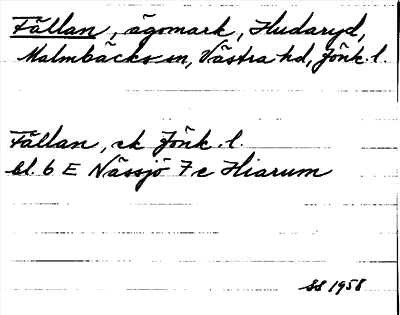 Fällan, ägomark, Hudaryd,
Malmbäcks sn, Västra hd, Jönk. l.
Fällan, ek Jönk. l.
bl. 6 E Nässjö 7 c Hiarum
SS 1958